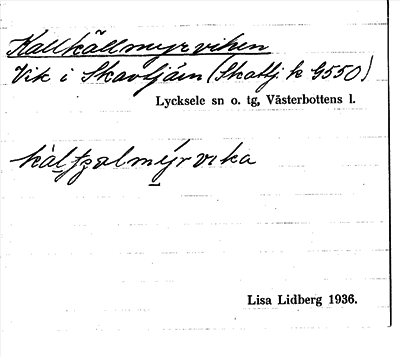 Kallkällmyrviken
Vik i Skavtjärn (Skattj. k 9550)
Lycksele sn o. tg, Västerbottens l.
kàl, tʒælmýrvika
Lisa Lidberg 1936.